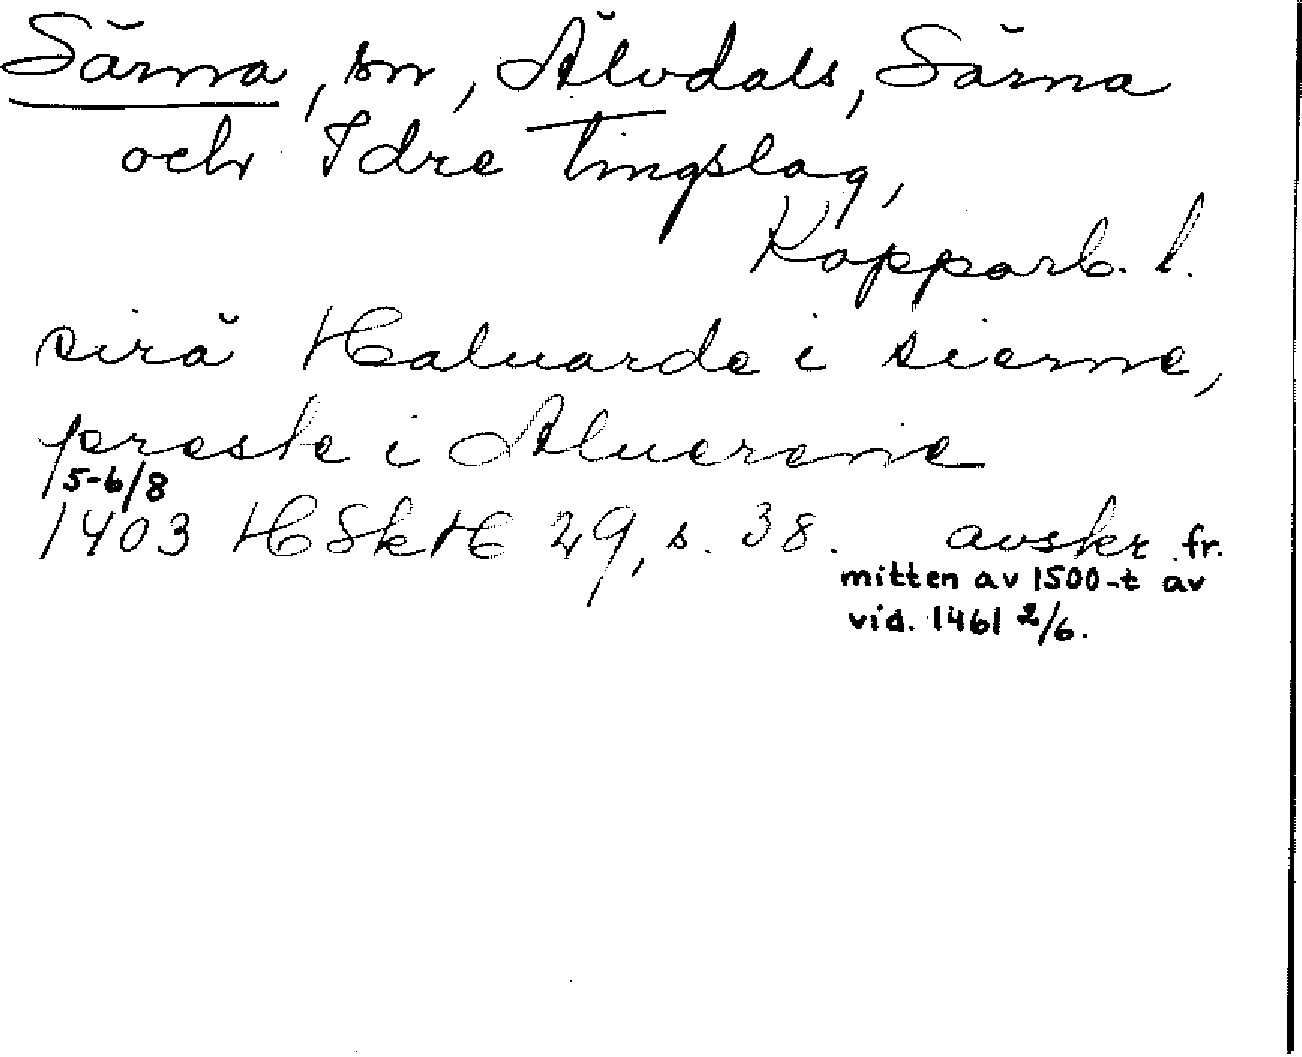 Särna, sn, Älvdals, Särna
och Idre Tingslag,
Kopparb. l.
sirä Haluarde i sierne,
preste i Aluerene
5-6/8
1403 HSkH 29, s. 38. avskr. fr.
mitten av 1500-t av
vid. 1461 2/6.